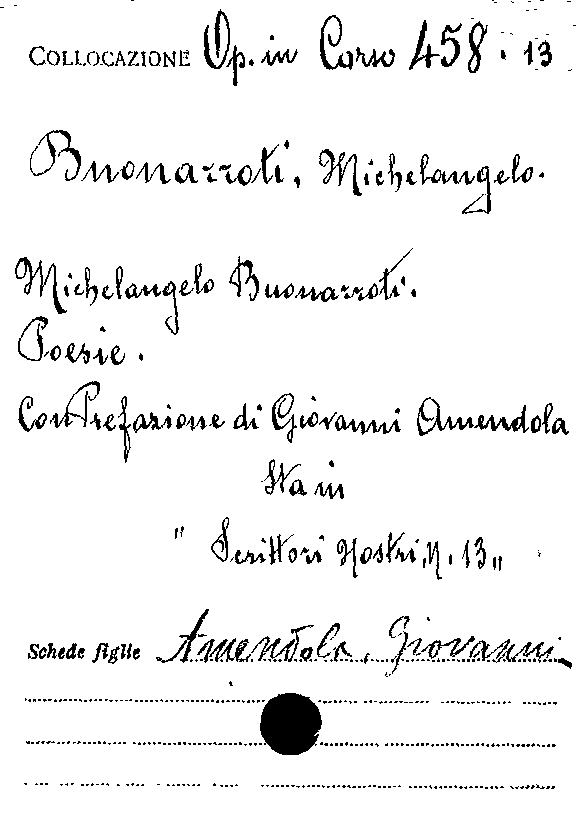 COLLOCAZIONE Op. in Corso 458. 13
Buonarroti, Michelangelo.
Michelangelo Buonarroti.
Poesie.
Con Prefazione di Giovanni Amendola
Sta in
"Scrittori Nostri, N. 13"
Schede figlie Amendola, Giovanni